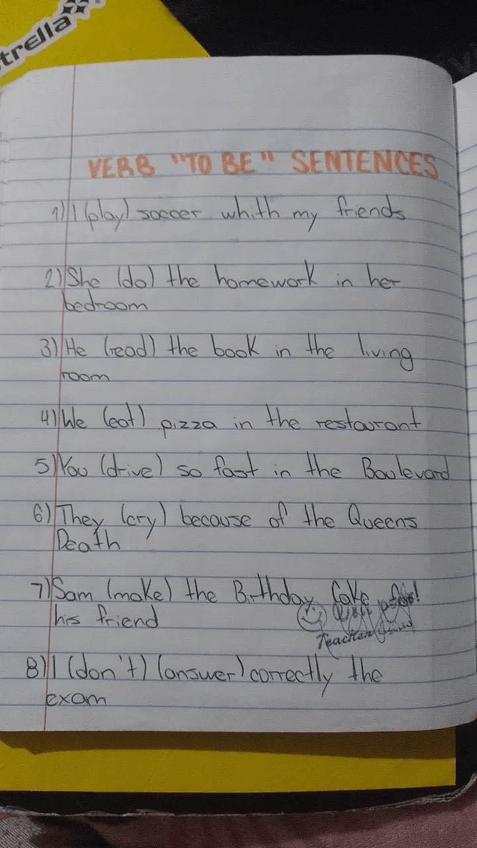 trella
VERB "TO BE" SENTENCES
1) I (play) soccer whith my friends
2) She (do) the homework in her
bedroom
3) He (read) the book in the living
room
4) We (eat) pizza in the restaurant
5) You (drive) so fast in the Boulevard
6) They (cry) because of the Queens
Death
7) Sam (make) the Birthday Cake for
his friend
Teacher
8) I (don't) (answer) correctly the
exam